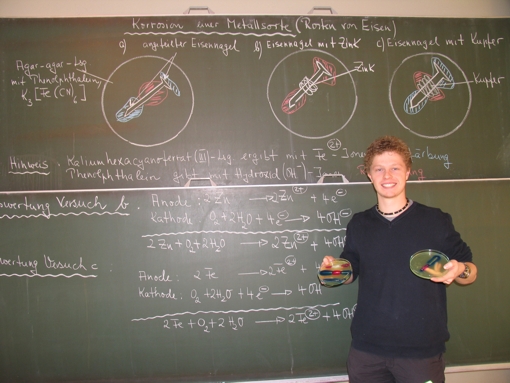 Korrosion einer Metallsorte (Rosten von Eisen)
a) angefeilter Eisennagel b) Eisennagel mit Zink c) Eisennagel mit Kupfer
Agar-agar-Lsg
mit Phenolphthalein
K₃[Fe(CN)₆]
Zink
Kupfer
Hinweis: Kaliumhexacyanoferrat(III)-Lsg ergibt mit Fe²⁺-Ionen
Phenolphthalein gibt mit Hydroxid(OH⁻)-Ionen
wertung Versuch b.
Anode: 2Zn → 2Zn²⁺ + 4e⁻
Kathode: O₂ + 2H₂O + 4e⁻ → 4OH⁻
2Zn + O₂ + 2H₂O → 2Zn²⁺ + 4OH
wertung Versuch c.
Anode: 2Fe → 2Fe²⁺ +
Kathode: O₂ + 2H₂O + 4e⁻ → 4OH
2Fe + O₂ + 2H₂O → 2Fe²⁺ + 4OH